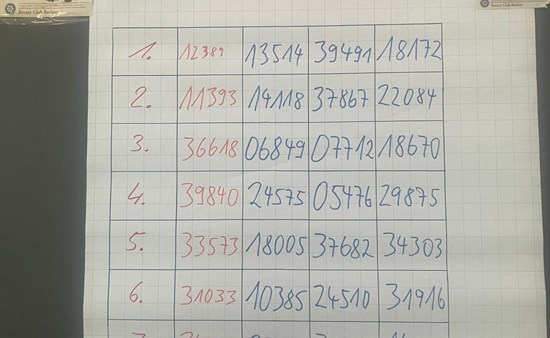 Rotary Club Barlinek
1. 12389 13514 39491 18172
2. 11393 14118 37867 22084
3. 36618 06849 07712 18670
4. 39840 24575 05476 29875
5. 33573 18005 37682 34303
6. 31033 10385 24510 31916